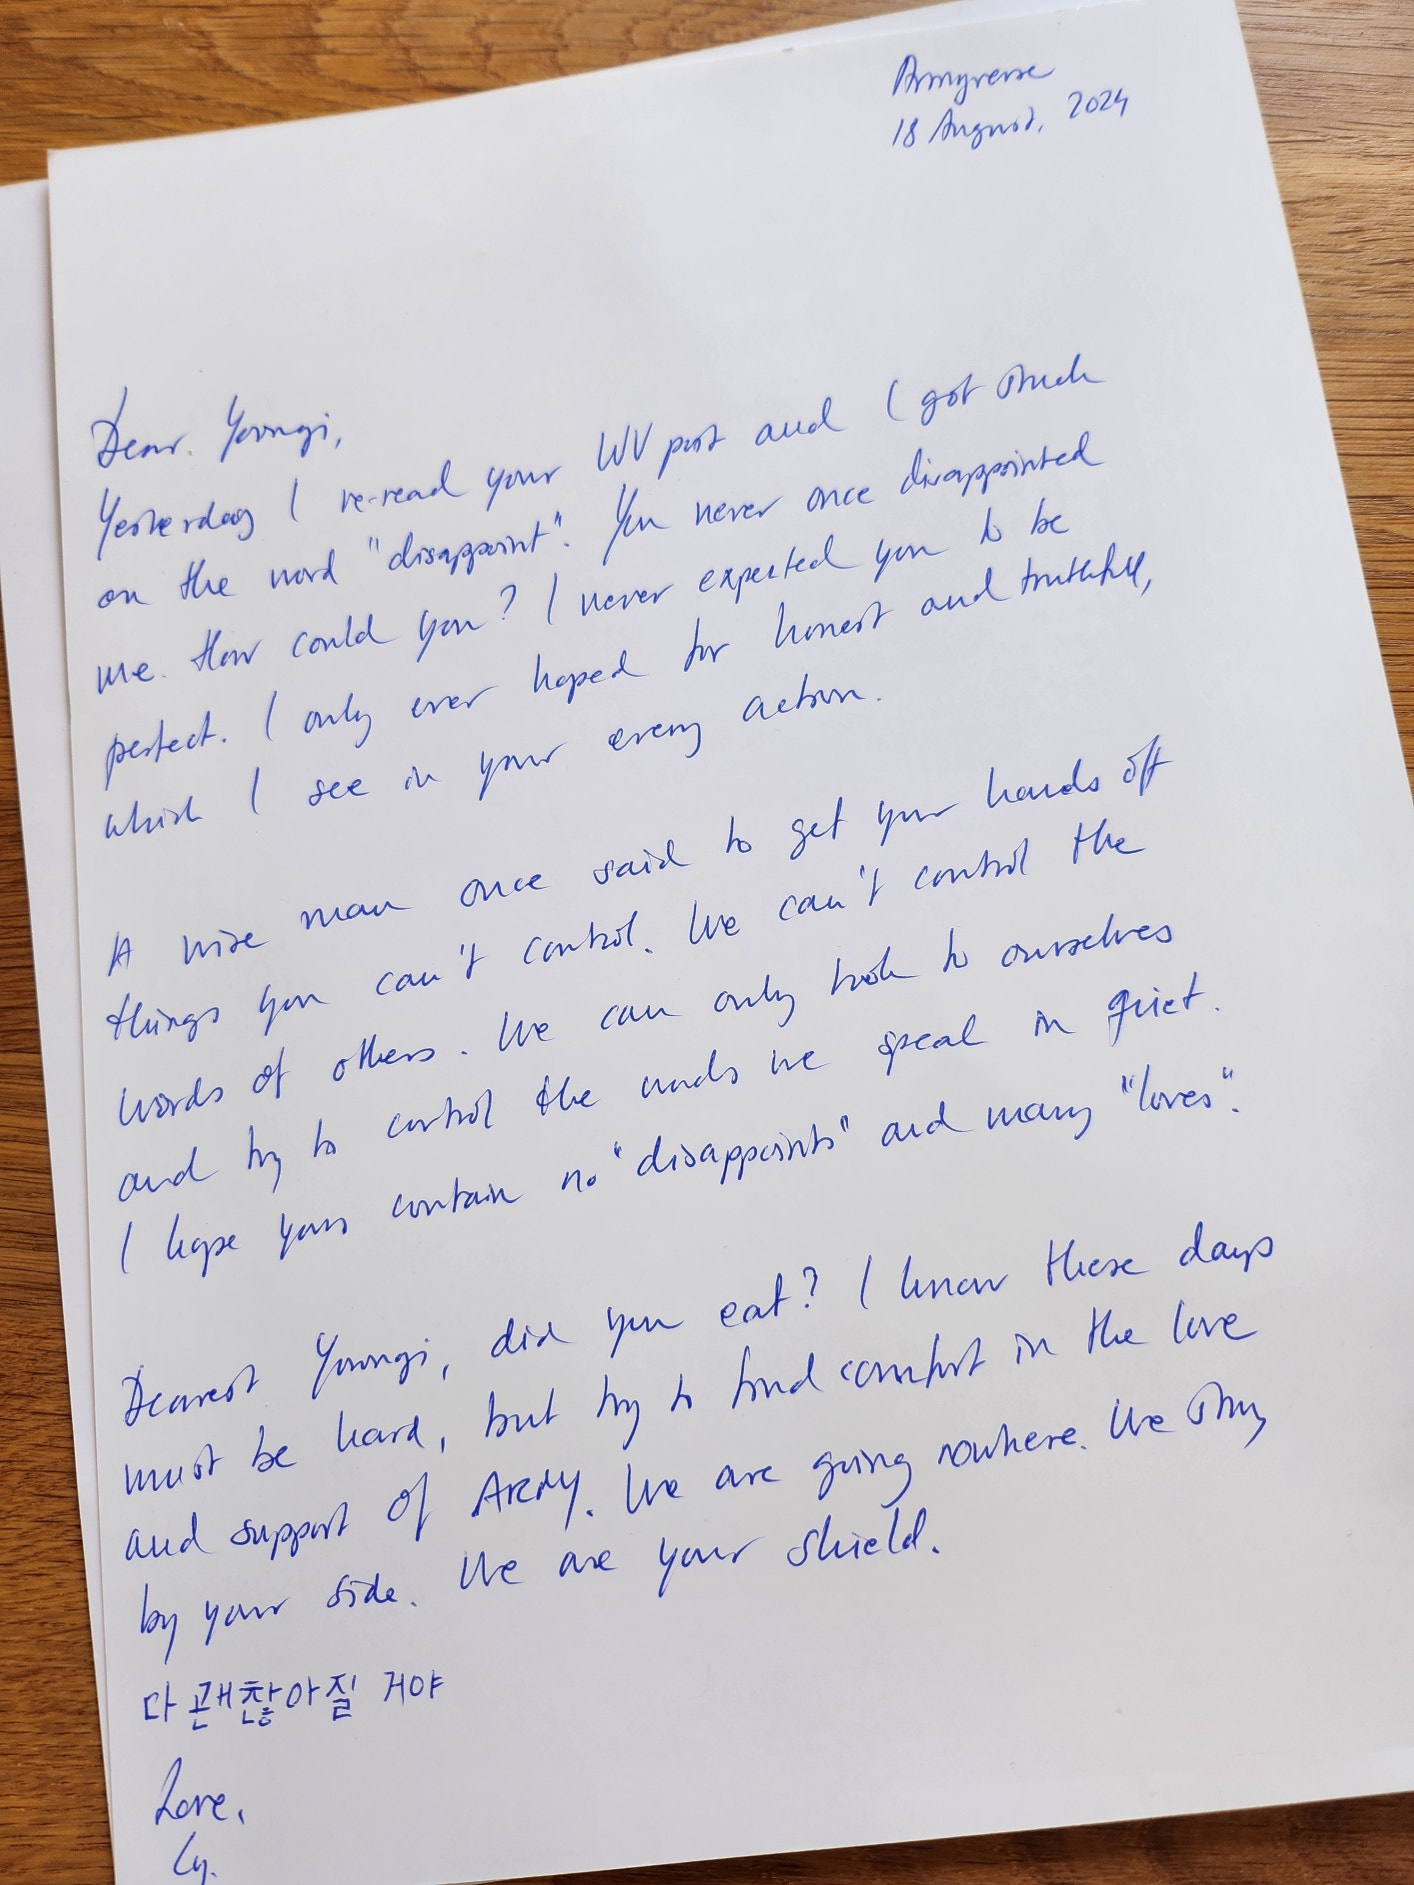 Armyverse
18 August, 2024
Dear Yoongi,
Yesterday I re-read your WV post and I got stuck
on the word "disappoint". You never once disappointed
me. How could you? I never expected you to be
perfect. I only ever hoped for honest and truthfull,
which I see in your every action.
A wise man once said to get your hands off
things you can't control. We can't control the
words of others. We can only look to ourselves
and try to control the words we speak in quiet.
I hope yours contain no "disappoints" and many "loves".
Dearest Yoongi, did you eat? I know these days
must be hard, but try to find comfort in the love
and support of ARMY. We are going nowhere. We stay
by your side. We are your shield.
다 괜찮아질 거야
Love,
Cy.